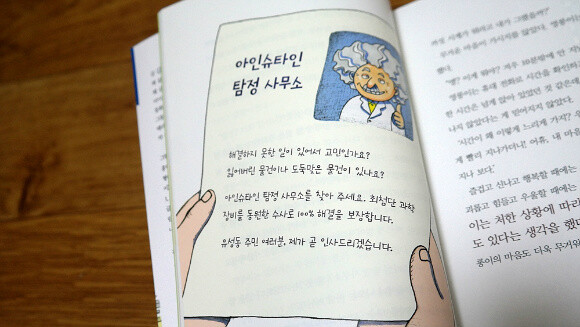 아인슈타인
탐정 사무소
해결하지 못한 일이 있어서 고민인가요?
잃어버린 물건이나 도둑맞은 물건이 있나요?
아인슈타인 탐정 사무소를 찾아 주세요. 최첨단 과학
장비를 동원한 수사로 100% 해결을 보장합니다.
유성동 주민 여러분, 제가 곧 인사드리겠습니다.
무거운 마음이 가시지를 않았다.
했다.
영풍이는 휴대 전화로 시간을 확인하
한 시간은 넘게 앉아 있었던 것 같은데
나지 않았다는 게 믿어지지 않았다.
'시간이 왜 이렇게 느리게 가지?
게 빨리 지나가더니! 어휴, 내 마음
지나 보다.'
즐겁고 신나고 행복할 때에는
괴롭고 힘들고 우울할 때에는
이는 처한 상황에 따라
도 있다는 생각을 했다
풍이의 마음도 더욱 무거워